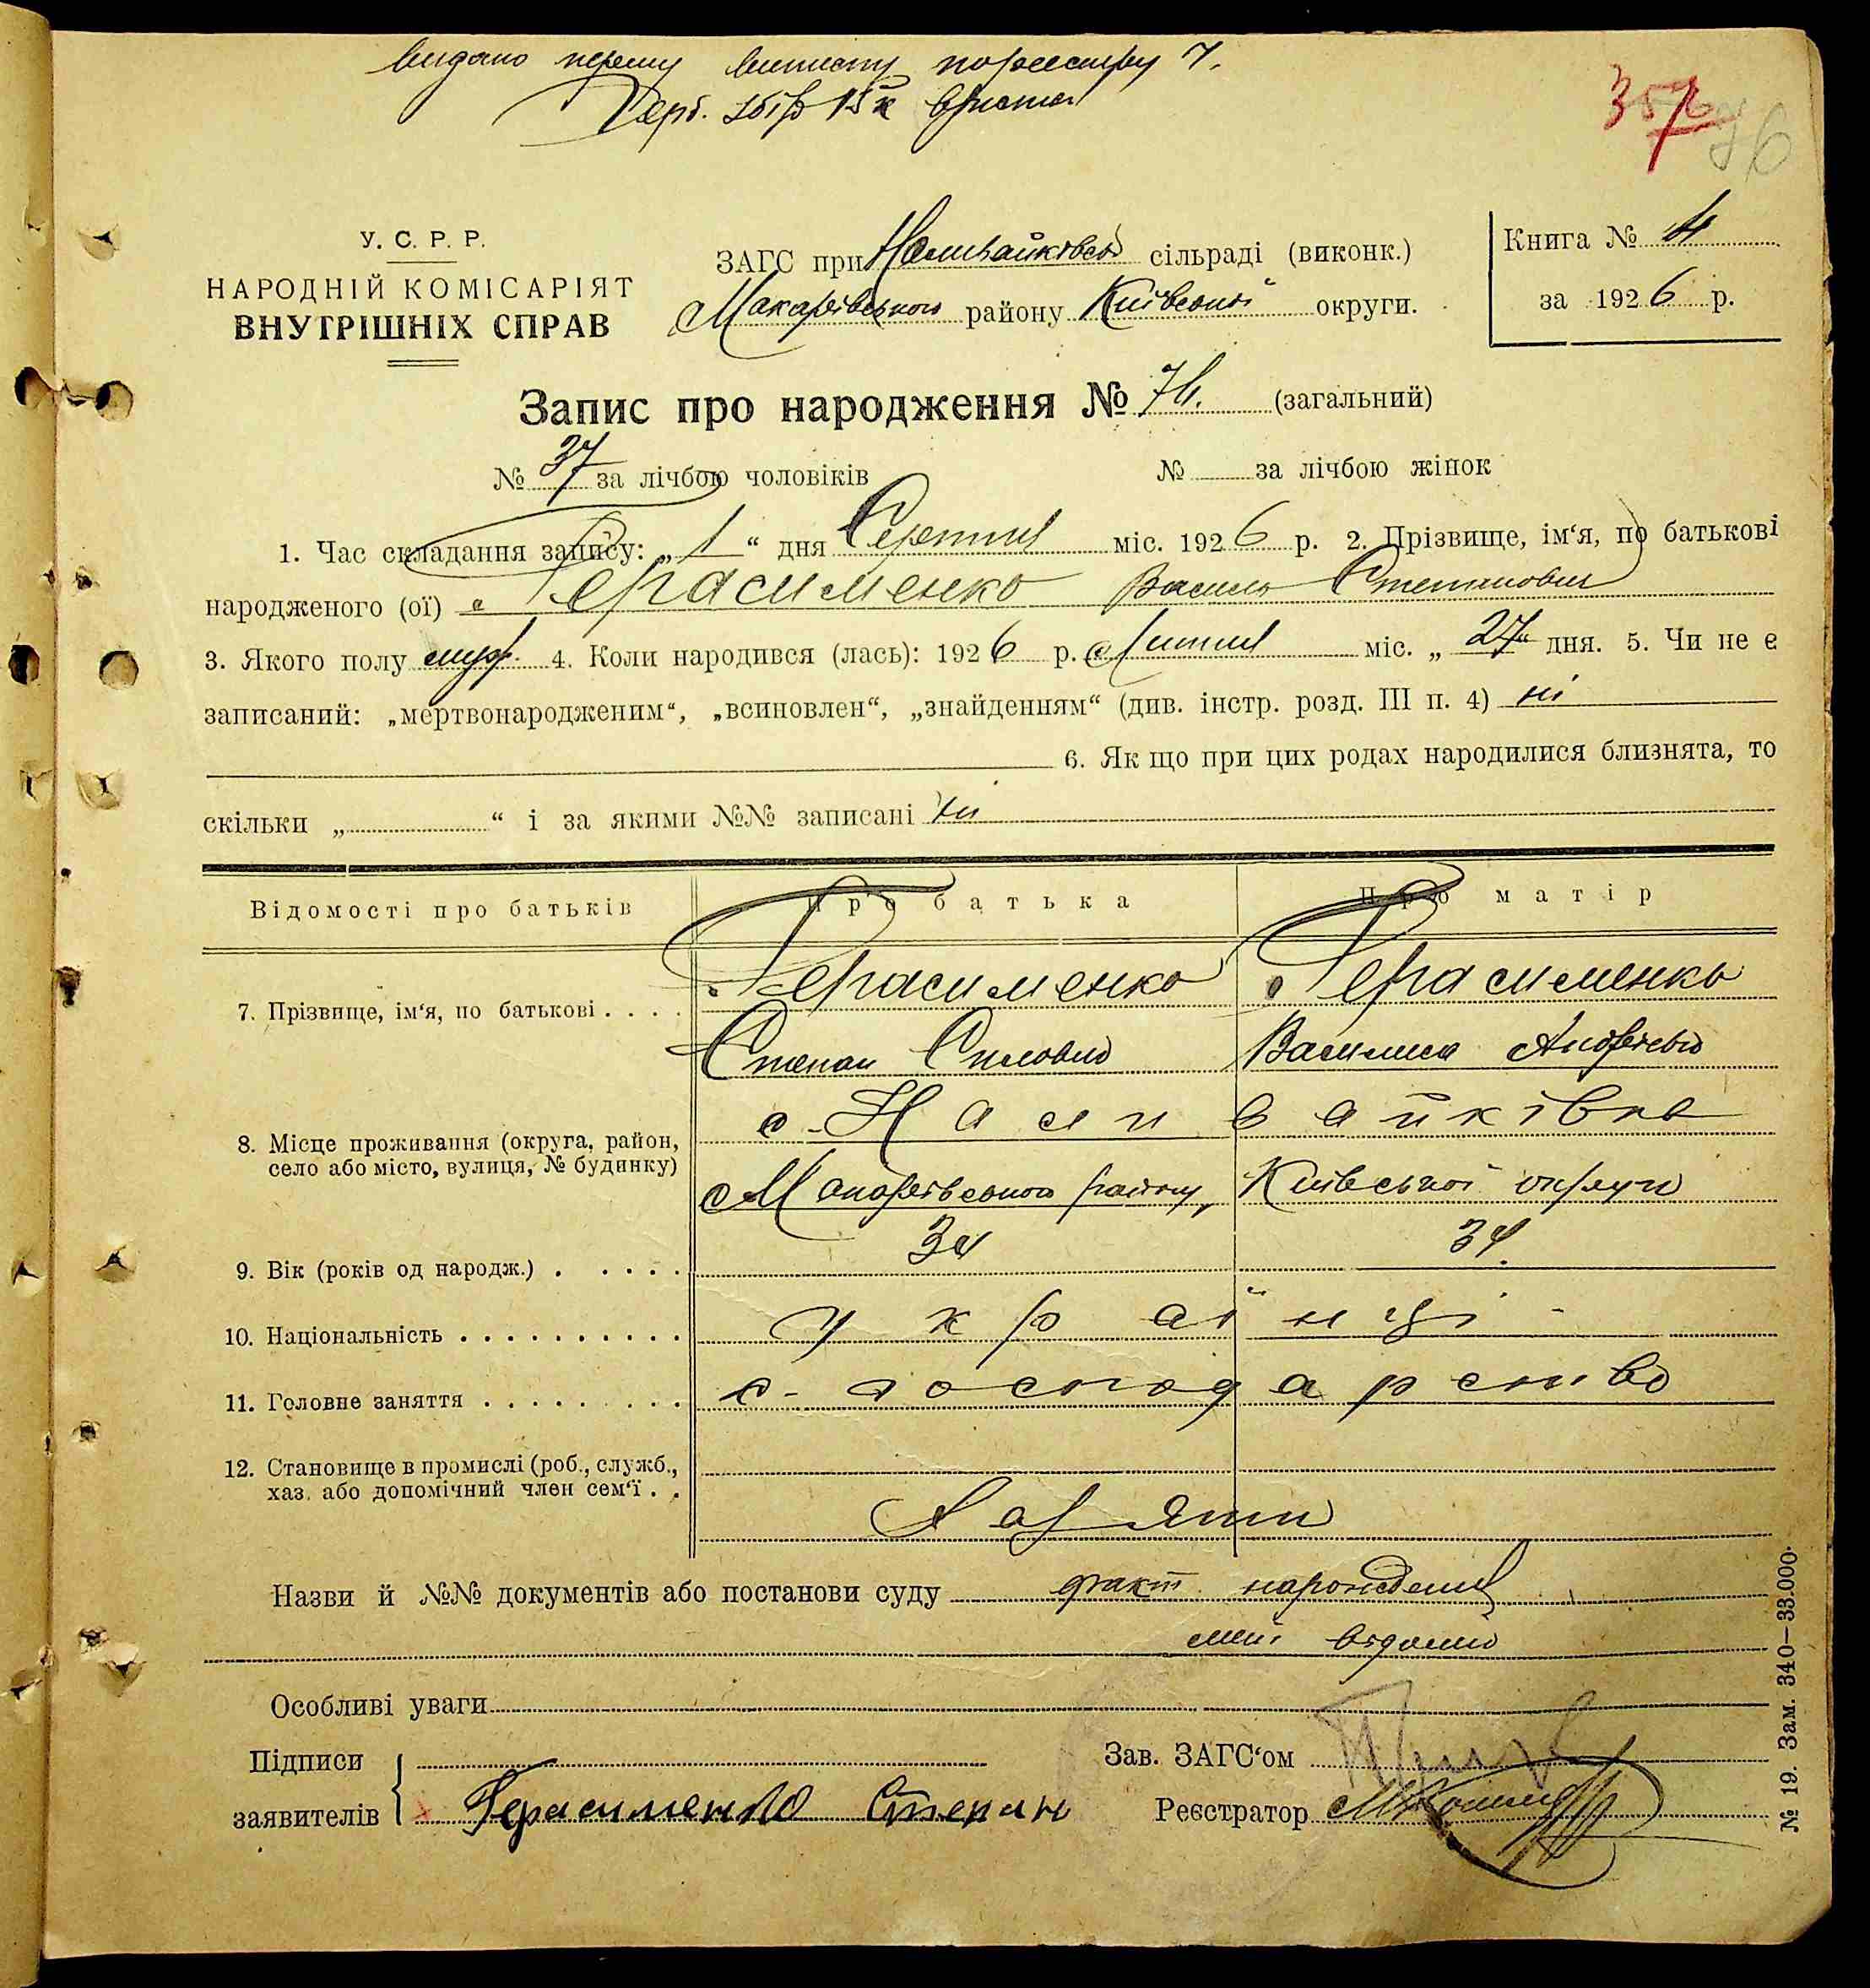 видано першу виписку по реєстру 7.
Герб. збір 15 к
357
96
У. С. Р. Р.
НАРОДНІЙ КОМІСАРІЯТ
ВНУТРІШНІХ СПРАВ
ЗАГС при Наливайківській сільраді (виконк.)
Макарівського району Київської округи.
Книга № 4
за 1926 р.
Запис про народження № 74. (загальний)
№ 37 за лічбою чоловіків № за лічбою жінок
1. Час складання запису: „ 1 “ дня Серпня міс. 1926 р. 2. Прізвище, ім‘я, по батькові
народженого (ої) Герасименко Василь Степанович
3. Якого полу муж. 4. Коли народився (лась): 1926 р. Липня міс. „ 27 “ дня. 5. Чи не є
записаний: „мертвонародженим“, „всиновлен“, „знайденням“ (див. інстр. розд. III п. 4) ні
6. Як що при цих родах народилися близнята, то
скільки „ “ і за якими №№ записані ні
Відомості про батьків Про батька Про матір
7. Прізвище, ім‘я, по батькові . . . . Герасименко Герасименко
Степан Силович Василиса Андріївна
8. Місце проживання (округа, район, село або місто, вулиця, № будинку) с. Наливайківка
Макарівського району, Київської округи
9. Вік (років од народж.) . . . . . 34 34.
10. Національність . . . . . . . . . . українці
11. Головне заняття . . . . . . . . . с. господарство
12. Становище в промислі (роб., служб.,
хаз. або допомічний член сем‘ї . .
Назви й №№ документів або постанови суду факт народження
мені відомо
Особливі уваги
Підписи Зав. ЗАГС‘ом
заявителів Герасименко Степан Реєстратор
№ 19. Зам. 340—33.000.